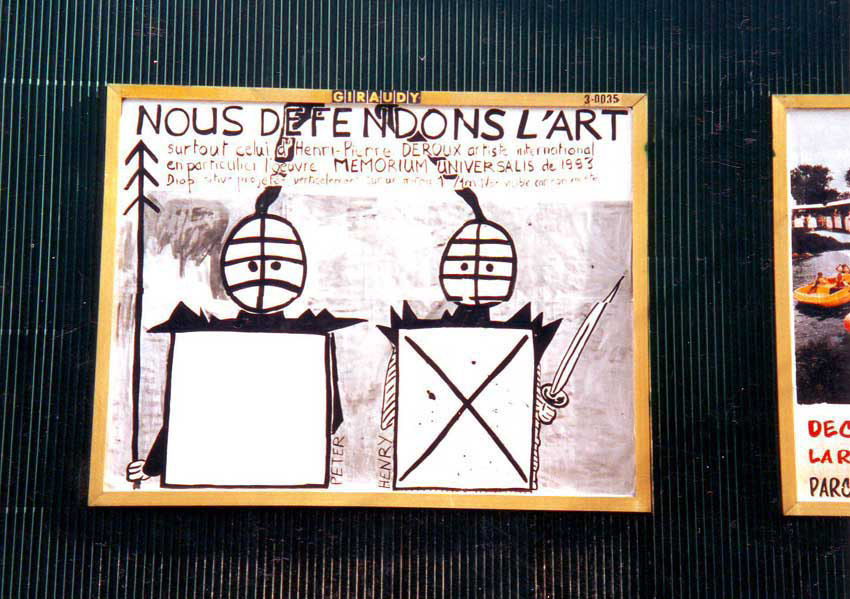 GIRAUDY
3-0035
NOUS DEFENDONS L'ART
surtout celui d'Henri-Pierre DEROUX artiste international
en particulier l'oeuvre MEMORIUM UNIVERSALIS de 1993
projetée verticalement sur un miroir
PETER
HENRY
DEC
LA R
PARC